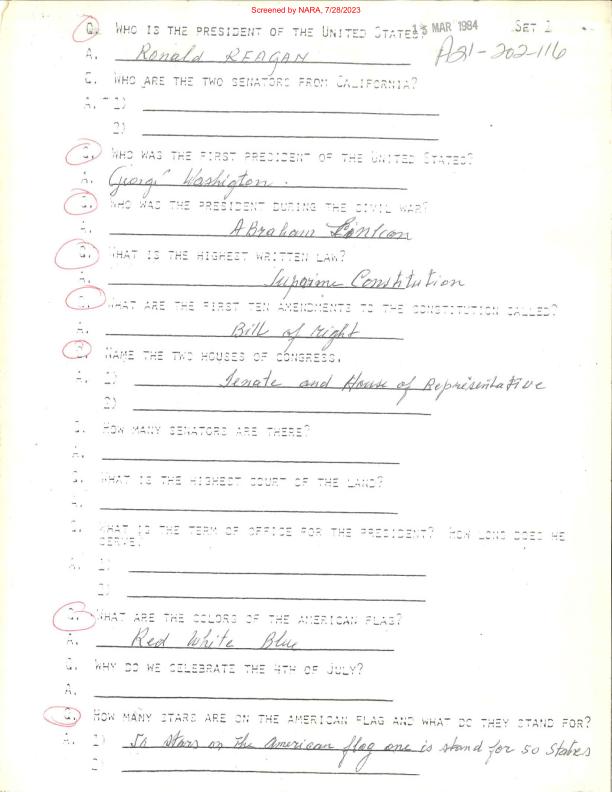 Screened by NARA, 7/28/2023
Q. WHO IS THE PRESIDENT OF THE UNITED STATES? 13 MAR 1984 SET 2
A21-202-116
A. Ronald REAGAN
Q. WHO ARE THE TWO SENATORS FROM CALIFORNIA?
A. 1)
2)
Q. WHO WAS THE FIRST PRESIDENT OF THE UNITED STATES?
A. George Washigton.
Q. WHO WAS THE PRESIDENT DURING THE CIVIL WAR?
A. ABraham
Q. WHAT IS THE HIGHEST WRITTEN LAW?
A. Suprime Constitution
Q. WHAT ARE THE FIRST TEN AMENDMENTS TO THE CONSTITUTION CALLED?
A. Bill of right
Q. NAME THE TWO HOUSES OF CONGRESS.
A. 1) Senate and House of RepresentaTive
2)
Q. HOW MANY SENATORS ARE THERE?
A.
Q. WHAT IS THE HIGHEST COURT OF THE LAND?
A.
Q. WHAT IS THE TERM OF OFFICE FOR THE PRESIDENT? HOW LONG DOES HE
SERVE?
A. 1)
2)
Q. WHAT ARE THE COLORS OF THE AMERICAN FLAG?
A. Red White Blue
Q. WHY DO WE CELEBRATE THE 4TH OF JULY?
A.
Q. HOW MANY STARS ARE ON THE AMERICAN FLAG AND WHAT DO THEY STAND FOR?
A. 1) 50 stars on the American flag one is stand for 50 States
2)